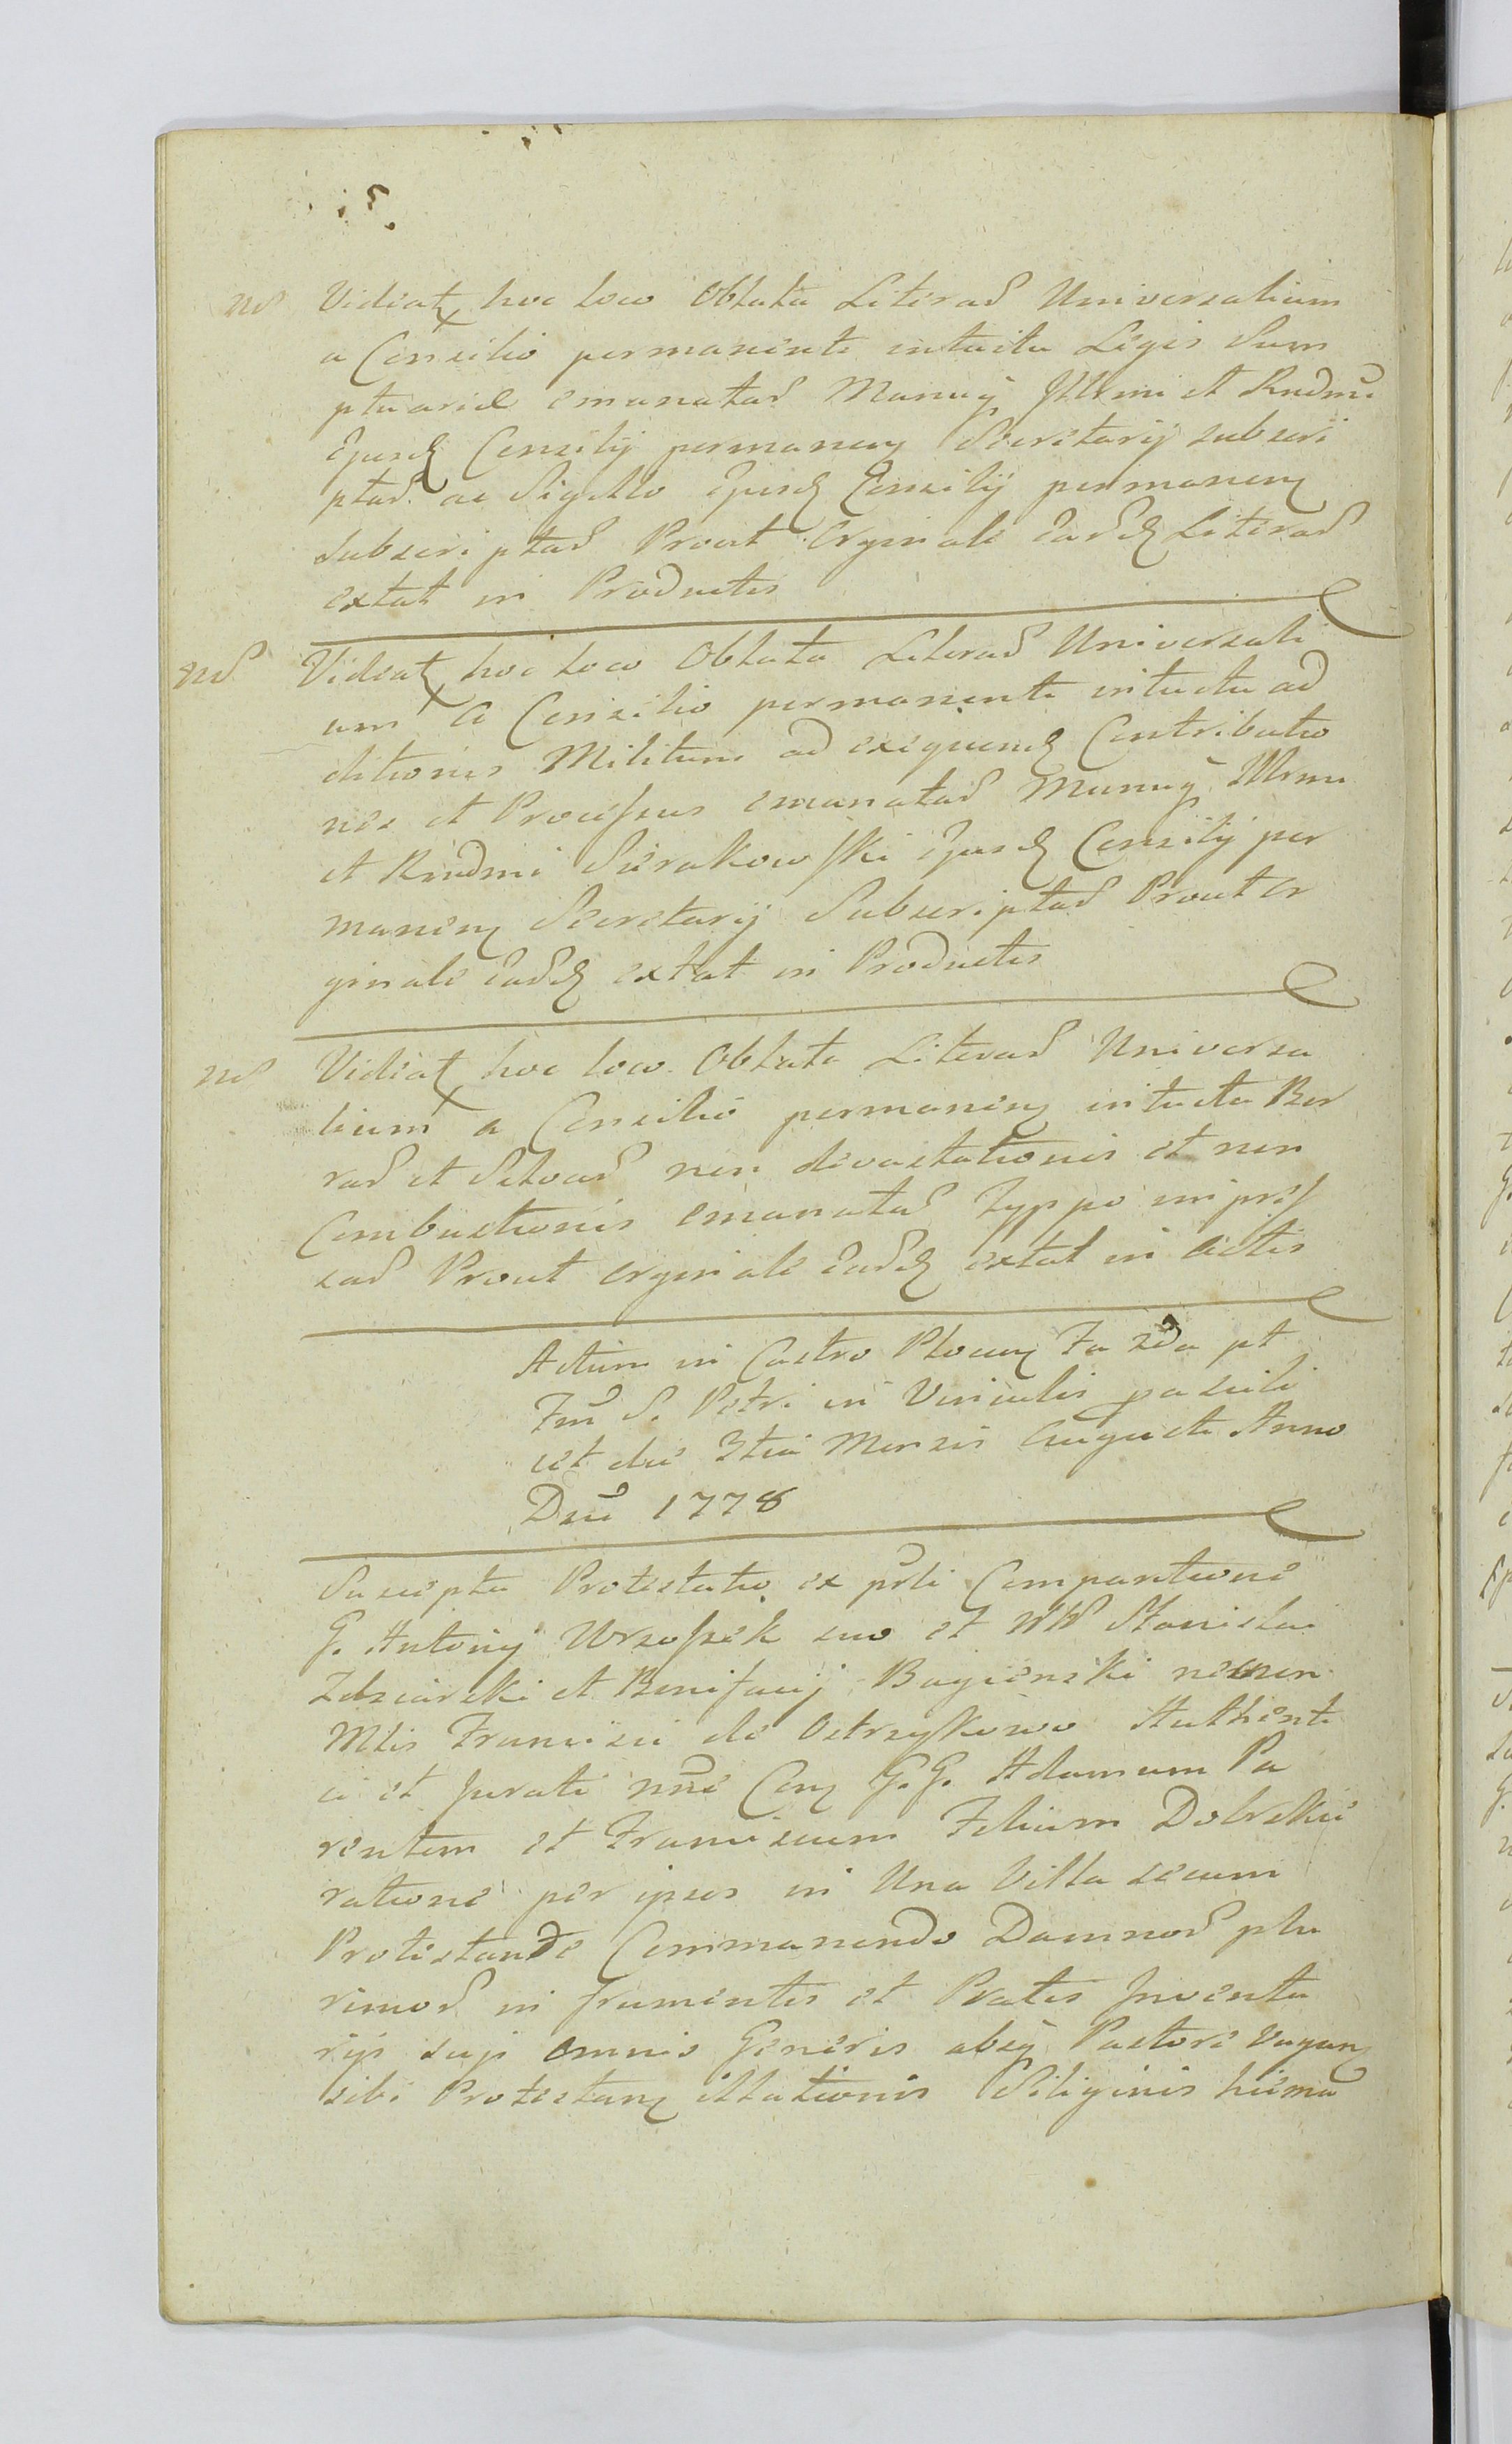 Nd Videatz hoc loco Oblata Literad Universalium
a Consilio permanente intuitu Legis Sum
ptuariae emanatad Manuq Illrmi et Rndmi
Ejusdz Consilij permanenz Secretarij subscri
ptad. ac Sigillo Ejusdz Consilij permanenz
Subscriptad Prout Orginale Eardz Literad
extat in Productis
Nd Videatz hoc loco Oblata Literad Universali
um a Consilio permanente intuitu ad
ditionis Militum ad exequendz Contributio
nes et Processus emanatad Manuq Illrmi
et Rndmi Sierakowski Ejusdz Consilij per
manenz Secretarij Subscriptad Prout Or
ginale Eaddz extat in Productis
Nd Videatz hoc loco Oblata Literad Universa
lium a Consilio permanenz intuitu Bor
rad et Silvad non devastationis et non
Combustionis emanatad Typpo impres
sad Prout orginale Eaddz extat in Actis
Actum in Castro Plocenz Fa 2da pt
Fm S. Petri in Vinculis
die 3tia Mensis Augusti Anno
Dni 1778
Suscepta Protestatio ex prli Comparitione
G. Antonij Wrzosek suo et WW Stanislai
Zdziarski et Bonifacij Bagienski necnon
Mlis Francisci de Ostrzykowo Authenti
ci et Jurati nne Conz G.G. Adamum Pa
rentem et Franciscum Filium Dobrskie
ratione per ipsos in Una Villa secum
Protestande Commanendo Damnod plu
rimod in frumentis et Pratis Inventa
rijs sujs omnis Generis absq Pastore vaganz
sibi Protestanz illationis Siliginis hiema